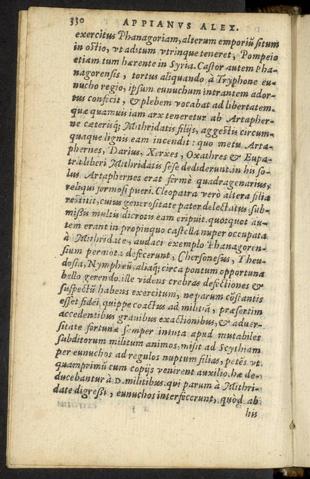 330 APPIANVS ALEX.
exercitus Phanagoriam, alterum emporiũ situm
in ostio, vt aditum vtrinque teneret, Pompeio
etiam tum hærente in Syria. Castor autem Pha-
nagorensis, tortus aliquando à Tryphone eu-
nucho regio, ipsum eunuchum intrantem ador-
tus confecit, & plebem vocabat ad libertatem.
quæ quamuis iam arx teneretur ab Artapher-
ne cæterisq; Mithridatis filijs, aggestis circum-
quaque lignis eam incendit: quo metu Arta-
phernes, Darius, Xerxes, Oxathres & Eupa-
tra liberi Mithridatis sese dediderunt. in his so-
lus Artaphernes erat fermè quadragenarius,
reliqui formosi pueri. Cleopatra verò altera filia
restitit, cuius generositate pater delectatus sub-
missis multis dicrotis eam eripuit. quotquot au-
tem erant in propinquo castella nuper occupata
à Mithridate, audaci exemplo Phanagoren-
sium permota defecerunt, Chersonesus, Theu-
dosia, Nymphæũ, aliaq; circa pontum opportuna
bello gerendo. ille videns crebras defectiones &
suspectũ habens exercitum, ne parum cõstantis
esset fidei, quippe coactus ad militiã, præsertim
accedentibus grauibus exactionibus, & aduer-
sitate fortunæ semper intuta apud mutabiles
subditorum militum animos, misit ad Scythiam
per eunuchos ad regulos nuptum filias, petẽs vt
quamprimũ cum copijs venirent auxilio. hæ de-
ducebantur à D. militibus. qui parum à Mithri-
date digressi, eunuchos interfecerunt, quòd ab
his